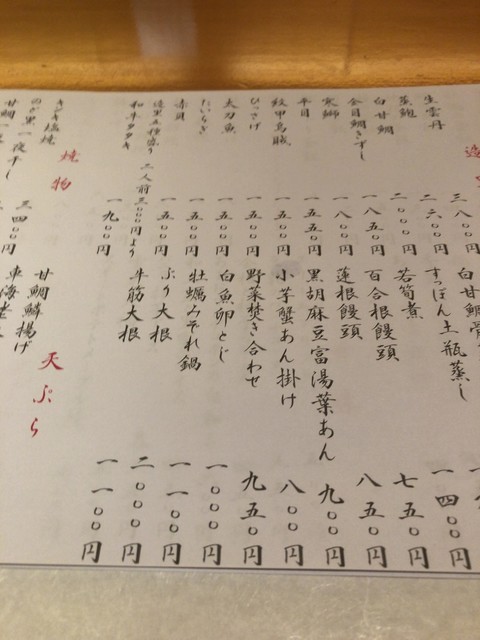 生雲丹 三八〇〇円
蒸鮑 二六〇〇円
白甘鯛 二〇〇〇円
金目鯛きずし 一八五〇円
寒鰤 一八〇〇円
平目 一五五〇円
紋甲烏賊 一五〇〇円
ひっさげ 一五〇〇円
太刀魚 一五〇〇円
たいらぎ 一五〇〇円
赤貝 一五〇〇円
造里五種盛り 二人前三〇〇〇円より
和牛タタキ 一九〇〇円
焼物
キジ塩焼 三四〇〇円
のど黒一夜干し
甘鯛一
白甘鯛骨
すっぽん土瓶蒸し
若筍煮 一四〇〇円
百合根饅頭 七五〇円
蓮根饅頭 八五〇円
黒胡麻豆富湯葉あん 九〇〇円
小芋蟹あん掛け 八〇〇円
野菜焚き合わせ 九五〇円
白魚卵とじ 一〇〇〇円
牡蠣みぞれ鍋 一一〇〇円
ぶり大根 二〇〇〇円
牛筋大根 一一〇〇円
天ぷら
甘鯛鱗揚げ
車海老